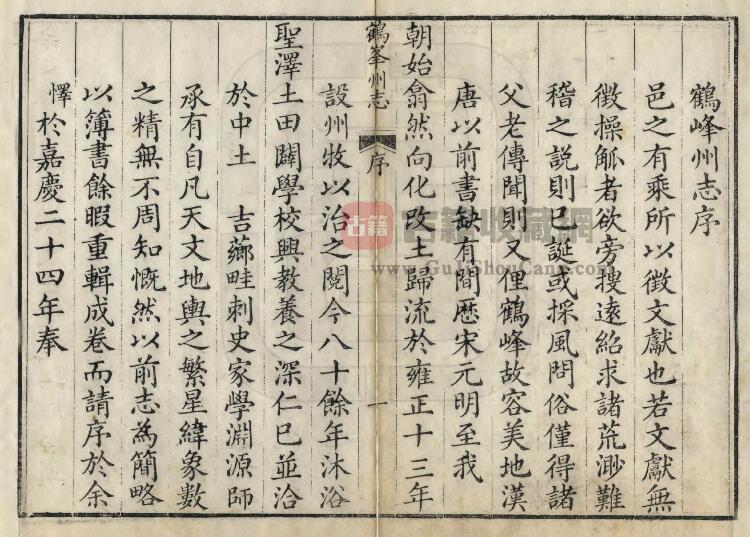 鶴峰州志序
邑之有乘所以徵文獻也若文獻無
徵操觚者欲旁搜遠紹求諸荒渺難
稽之説則已誕或採風問俗僅得諸
父老傳聞則又俚鶴峰故容美地漢
唐以前書缺有間歷宋元明至我
朝始翕然向化改土歸流於雍正十三年
鶴峯州志
序
一
設州牧以治之閱今八十餘年沐浴
聖澤土田闢學校興教養之深仁已並洽
於中土 吉薌畦刺史家學淵源師
承有自凡天文地輿之繁星緯象數
之精無不周知慨然以前志為簡略
以簿書餘暇重輯成卷而請序於余
懌於嘉慶二十四年奉
古籍
古籍收藏網
www.GuJiShouCang.com